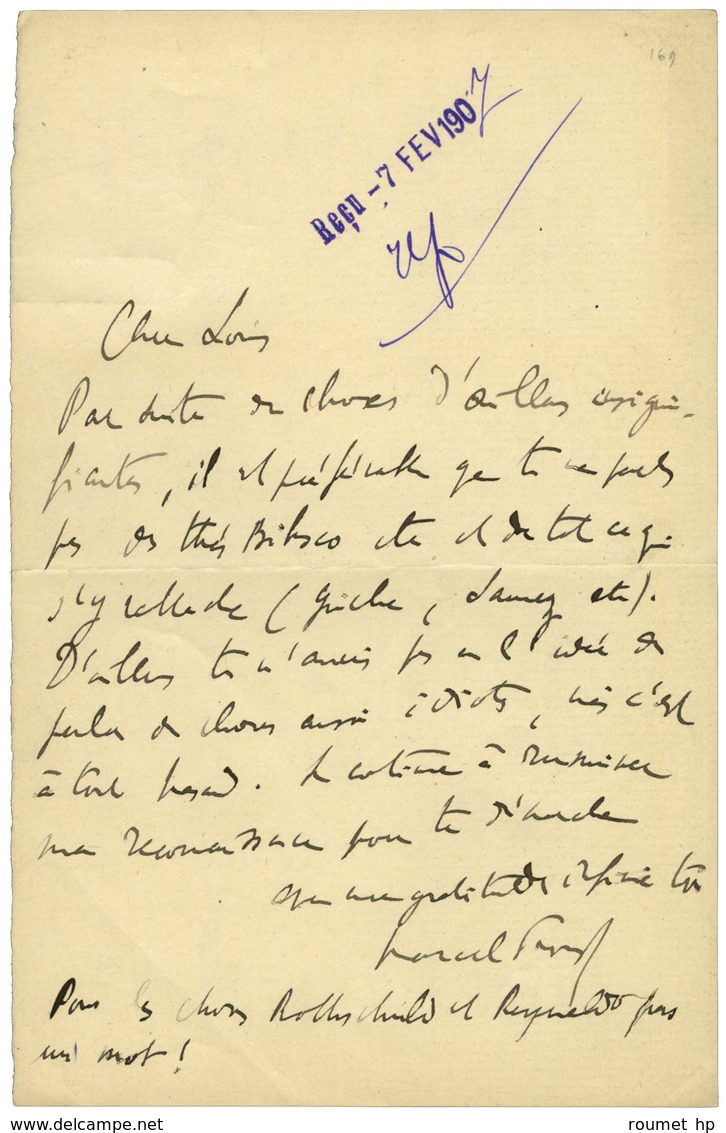 169
Reçu - 7 FEV 1907
Cher Louis
Par suite de choses d'ailleurs insigni-
fiantes, il est préférable que tu ne parles
pas des thés Bibesco etc et de tout ce qui
s'y rattache (Guiche, etc).
D'ailleurs tu n'aurais pas eu l'idée de
parler de choses aussi idiotes, mais c'est
à tout hasard. Je continue à
ma reconnaissance pour ta démarche
avec une gratitude infinie
Marcel Proust
Pour les choses Rothschild et Reynaldo pas
un mot !
roumet hp